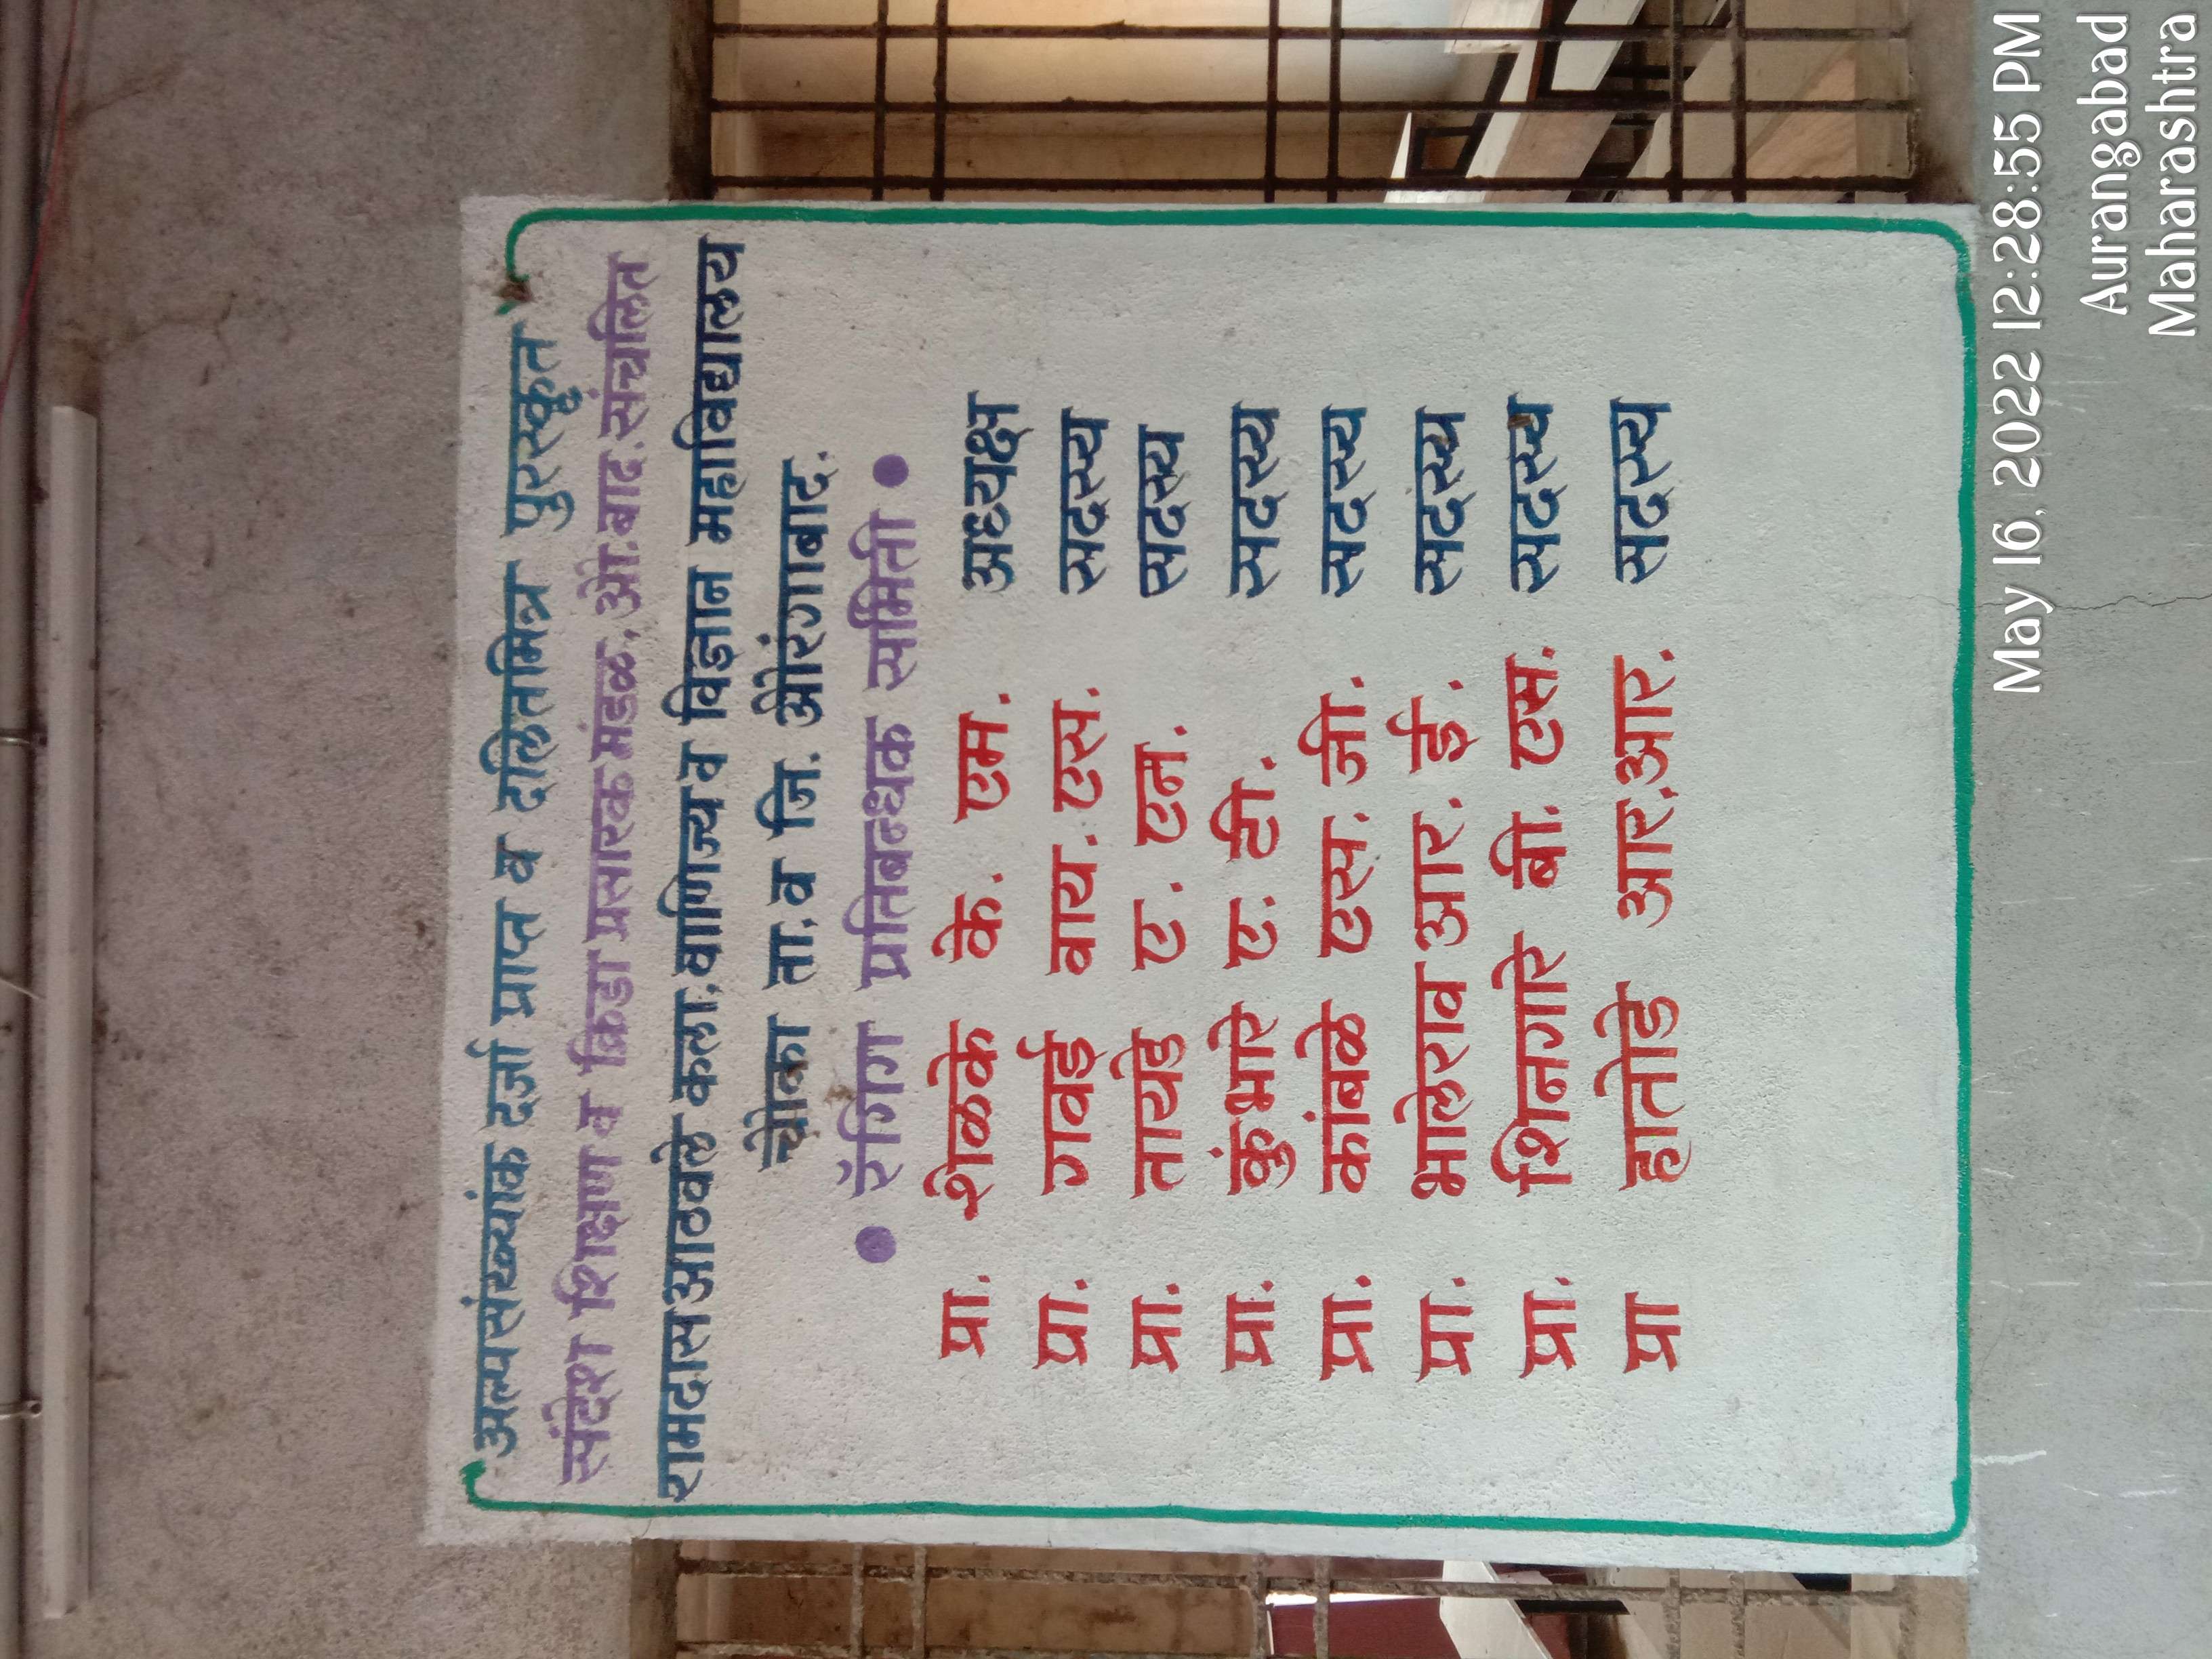 अल्पसंख्यांक दर्जा प्राप्त व दलितमित्र पुरस्कृत
संदेश शिक्षण व क्रिडा प्रसारक मंडळ, औ.बाद. संचलित
रामदास आठवले कला, वाणिज्य व विज्ञान महाविद्यालय
चौका ता. व जि. औरंगाबाद.
• रॅगिंग प्रतिबन्धक समिती •
प्रा. शेळके के. एम. अध्यक्ष
प्रा. गवई वाय. एस. सदस्य
प्रा. तायडे ए. एन. सदस्य
प्रा. कुंभारे ए. टी. सदस्य
प्रा. कांबळे एस. जी. सदस्य
प्रा. भालेराव आर. ई. सदस्य
प्रा. शिनगारे बी. एस. सदस्य
प्रा हातोडे आर. आर. सदस्य
May 16, 2022 12:28:55 PM
Aurangabad
Maharashtra